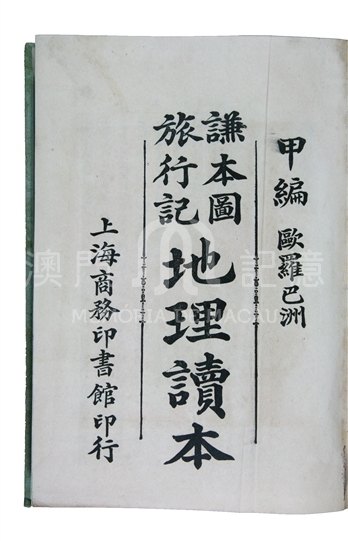 甲編 歐羅巴洲
謙本圖
旅行記
地理讀本
上海商務印書館印行
澳門記憶
MEMÓRIA DE MACAU